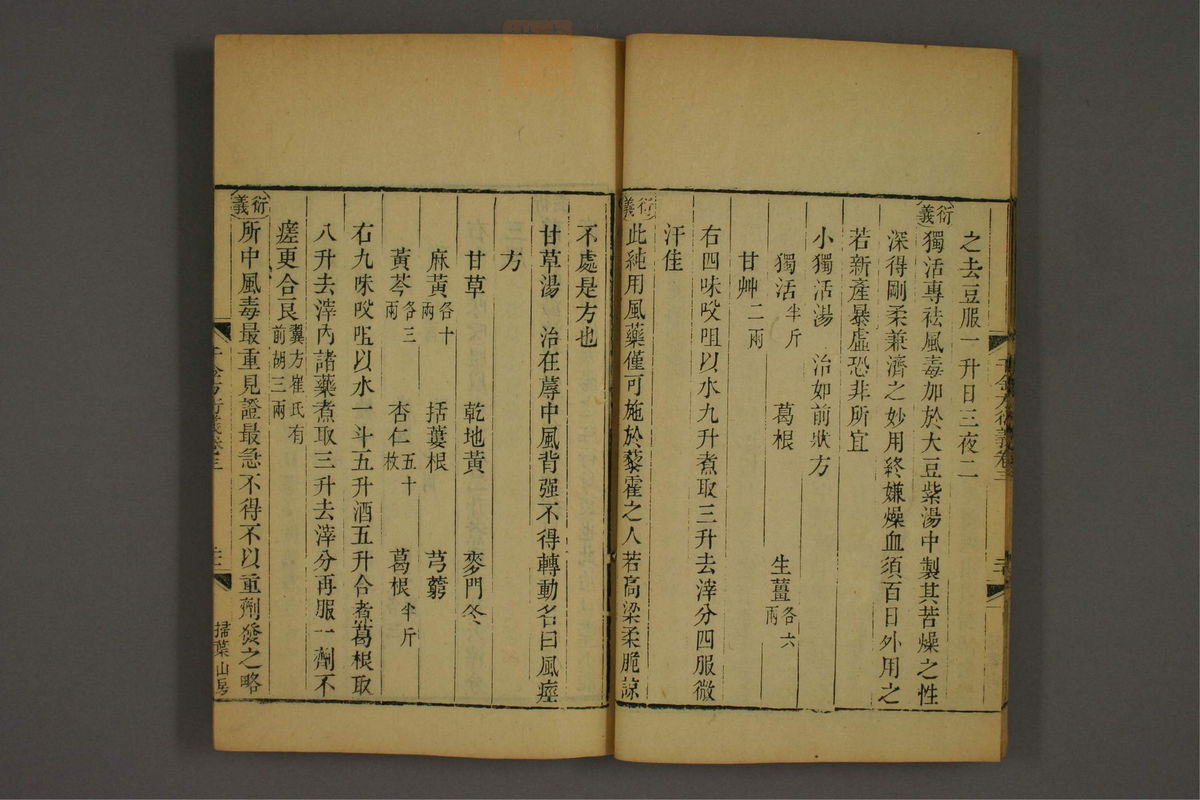 之去豆服一升日三夜二
衍義
獨活專祛風毒加於大豆紫湯中製其苦燥之性
深得剛柔兼濟之妙用終嫌燥血須百日外用之
若新產暴虛恐非所宜
小獨活湯 治如前狀方
獨活半斤 葛根 生薑各六兩
甘艸二兩
右四味㕮咀以水九升煮取三升去滓分四服微
汗佳
衍義
此純用風藥僅可施於藜藿之人若高粱柔脆諒
不處是方也
甘草湯 治在蓐中風背强不得轉動名曰風痙
方
甘草 乾地黃 麥門冬
麻黃各十兩 括蔞根 芎藭
黃芩各三兩 杏仁五十枚 葛根半斤
右九味㕮咀以水一斗五升酒五升合煮葛根取
八升去滓內諸藥煮取三升去滓分再服一劑不
瘥更合良翼方崔氏有前胡三兩
衍義
所中風毒最重見證最急不得不以重劑發之略
千金方衍義卷三
掃葉山房